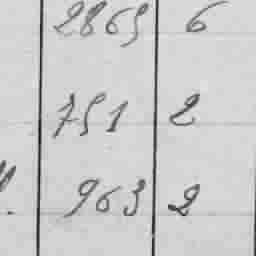 2865 6
751 2
963 2